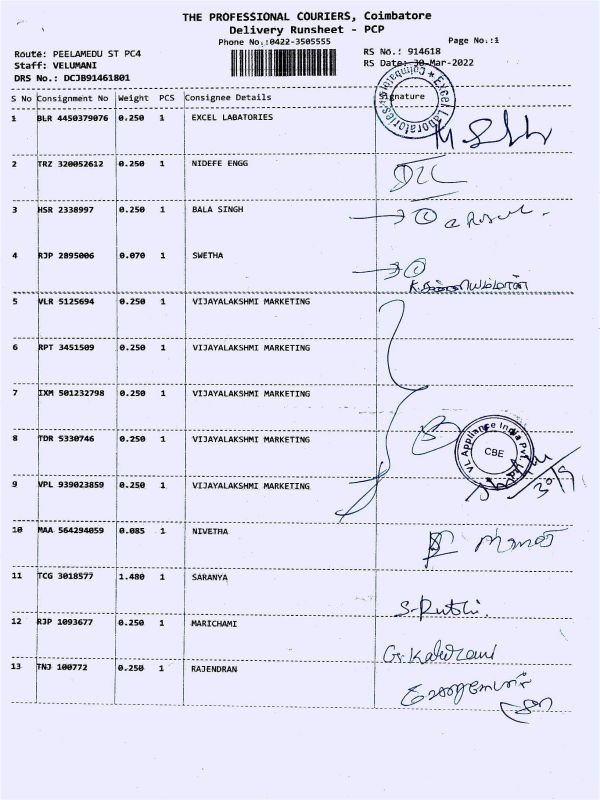 THE PROFESSIONAL COURIERS, Coimbatore
Delivery Runsheet - PCP
Phone No.:0422-3505555
Page No.:1
Route: PEELAMEDU ST PC4
RS No.: 914618
Staff: VELUMANI
RS Date: 30-Mar-2022
DRS No.: DCJB91461801
S No Consignment No Weight PCS Consignee Details Signature
1 BLR 4450379076 0.250 1 EXCEL LABATORIES
Excel Laboratories Coimbatore
2 TRZ 320052612 0.250 1 NIDEFE ENGG
3 HSR 2338997 0.250 1 BALA SINGH
4 RJP 2895006 0.070 1 SWETHA
5 VLR 5125694 0.250 1 VIJAYALAKSHMI MARKETING
6 RPT 3451509 0.250 1 VIJAYALAKSHMI MARKETING
7 IXM 501232798 0.250 1 VIJAYALAKSHMI MARKETING
8 TDR 5330746 0.250 1 VIJAYALAKSHMI MARKETING
VL Appliance India Pvt.
CBE
9 VPL 939023859 0.250 1 VIJAYALAKSHMI MARKETING
10 MAA 564294059 0.085 1 NIVETHA
11 TCG 3018577 1.480 1 SARANYA
12 RJP 1093677 0.250 1 MARICHAMI
13 TNJ 100772 0.250 1 RAJENDRAN